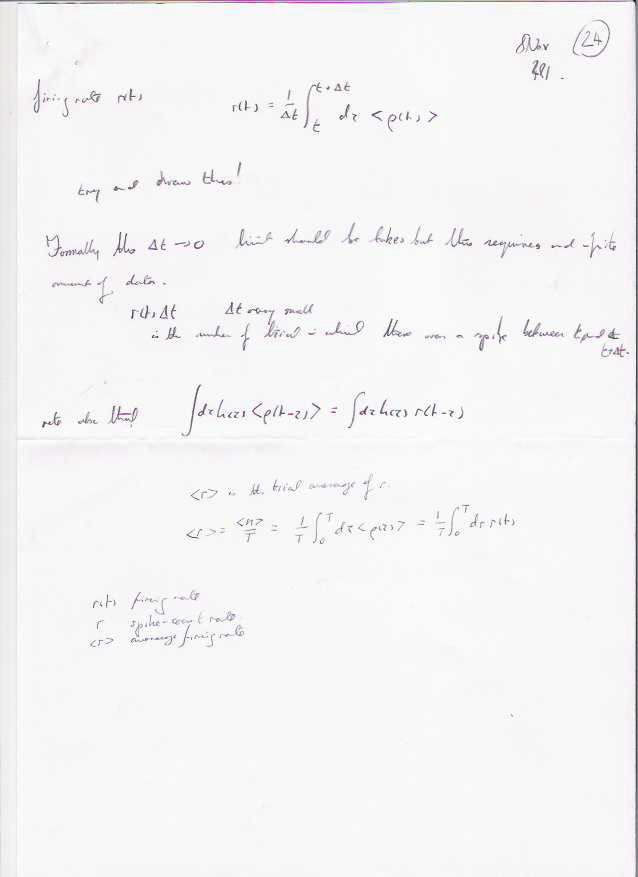 8 Nov 24
firing rate r(t)
r(t) = 1/Δt ∫_t^{t+Δt} dτ <ρ(t)>
try and draw this!
Formally the Δt → 0 limit should be taken but this requires and -finite
amount of data.
r(t)Δt Δt very small
is the number of trial in which there was a spike between t and t
t+Δt.
note also that ∫dτ h(τ) <ρ(t-τ)> = ∫dτ h(τ) r(t-τ)
<r> is the trial average of r.
<r> = <n>/T = 1/T ∫_0^T dτ <ρ(τ)> = 1/T ∫_0^T dτ r(t)
r(t) firing rate
r spike-count rate
<r> average firing rate